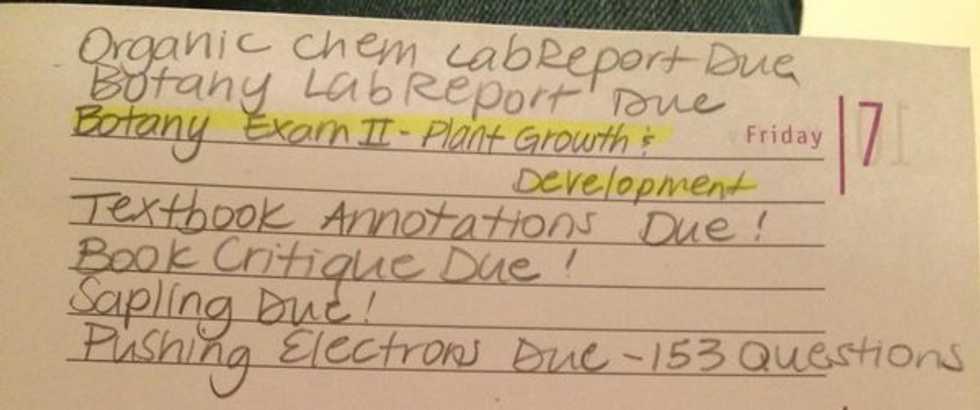 Organic Chem Lab Report Due
Botany Lab Report Due
Botany Exam II - Plant Growth &
Friday 17
Development
Textbook Annotations Due!
Book Critique Due!
Sapling Due!
Pushing Electrons Due - 153 Questions